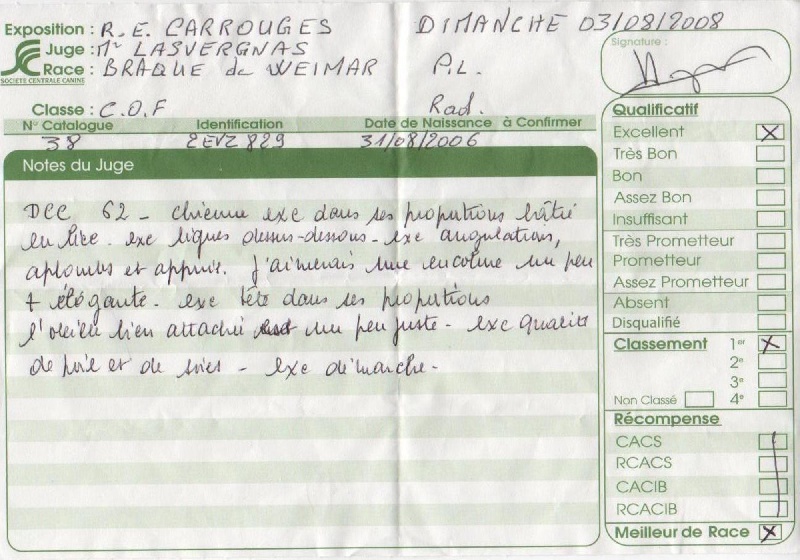 Exposition : R.E. CARROUGES DIMANCHE 03/08/2008
Juge : Mr LASVERGNAS
Race : BRAQUE de WEIMAR P.L.
SOCIÉTÉ CENTRALE CANINE
Classe : C.O.F Rad.
N° Catalogue Identification Date de Naissance à Confirmer
38 2EVZ829 31/08/2006
Notes du Juge
DCC 62 - chienne exc dans ses proportions bâtie
en lice. exc lignes dessus-dessous - exc angulations,
aplombs et appuis. J'aimerais une encolure un peu
+ élégante - exc tête dans ses proportions
l'oreille bien attaché un peu juste - exc qualité
de poil et de - exc démarche -
Signature :
Qualificatif
Excellent X
Très Bon
Bon
Assez Bon
Insuffisant
Très Prometteur
Prometteur
Assez Prometteur
Absent
Disqualifié
Classement 1er X
2e
3e
Non Classé 4e
Récompense
CACS
RCACS
CACIB
RCACIB
Meilleur de Race X